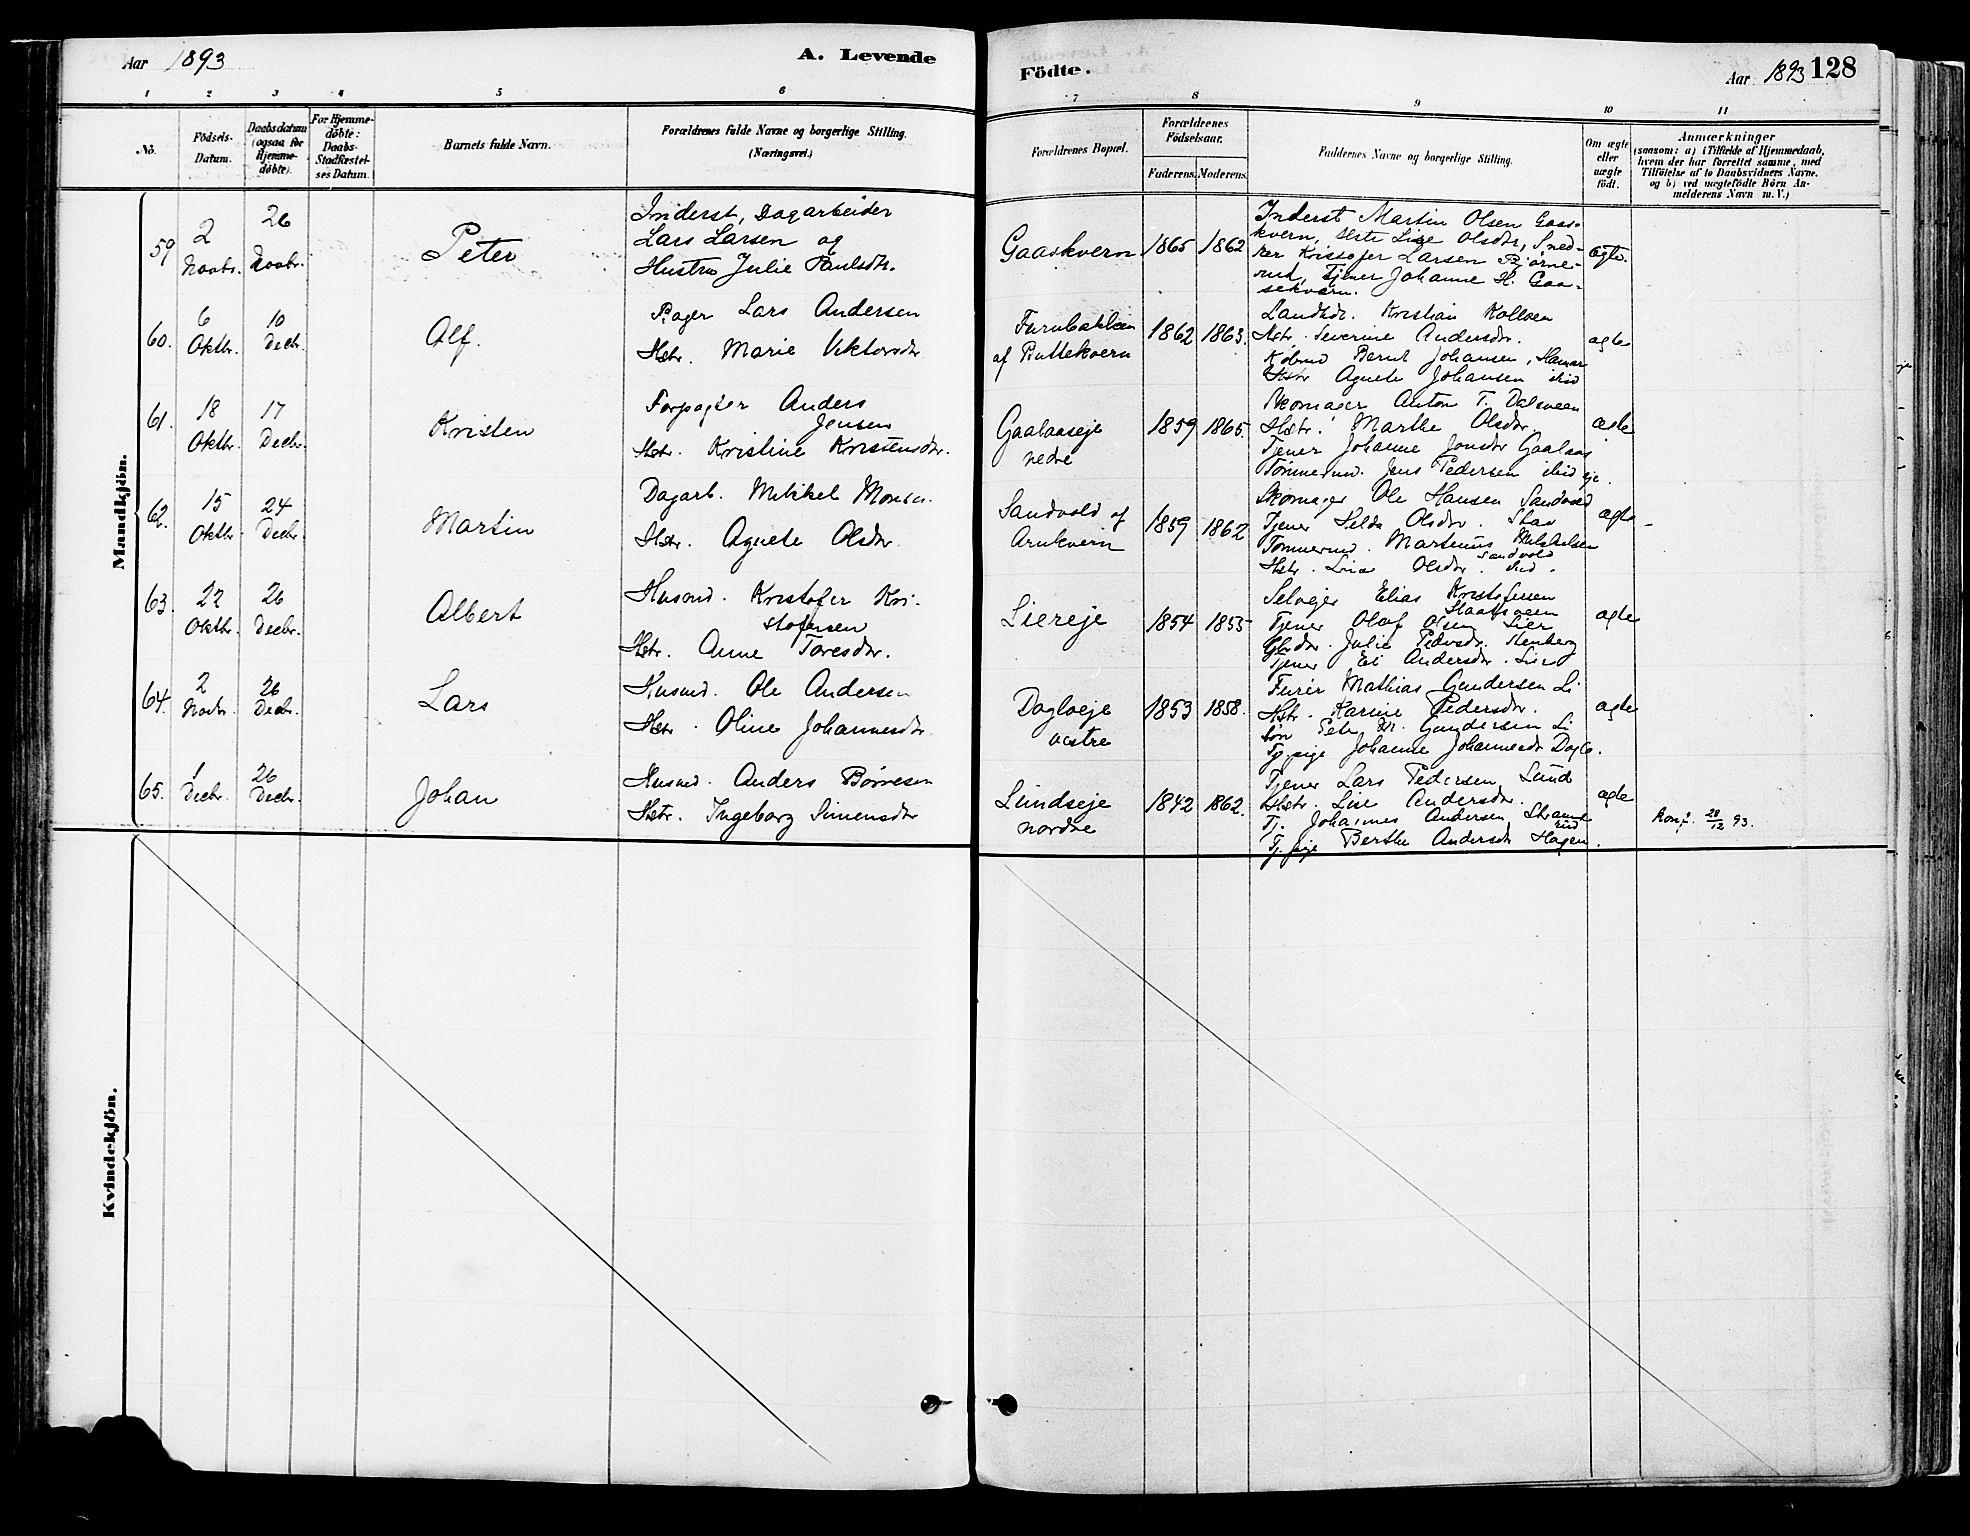 Aar 1893
A. Levende
Födte.
Aar 1893 128
1 2 3 4 5 6 7 8 9 10 11
No.
Födsels-
Datum.
Daabsdatum
(ogsaa for
Hjemme-
døbte).
For Hjemme-
døbte:
Daabs-
Stadfæstel-
ses Datum.
Barnets fulde Navn.
Forældrenes fulde Navne og borgerlige Stilling.
(Næringsvei.)
Forældrenes Bopæl.
Forældrenes
Födselsaar.
Faderens. Moderens.
Faddernes Navne og borgerlige Stilling.
Om ægte
eller
uægte
födt.
Anmærkninger
(saasom: a) i Tilfælde af Hjemmedaab,
hvem der har forrettet samme, med
Tilföielse af to Daabsvidners Navne,
og b) ved uægtefödte Börn An-
melderens Navn m.V.)
Mandkjön.
59
2
Novbr.
26
Novbr.
Peter
Inderst, Dagarbeider
Lars Larsen og
Hustru Julie Paulsdtr.
Gaaskvern
1865 1862
Inderst Martin Olsen Gaas-
kvern, Hste Lise Olsdtr, Sned-
ker Kristofer Larsen Bjørne-
rud, Tjener Johanne H. Gaa-
sekvern.
ægte.
60.
6
Oktbr.
10
Decbr.
Alf.
Bager Lars Andersen
Hstr. Marie Viktorsdtr
Furubakken
af Buttekvern
1862 1863.
Landhdr. Kristian Kolloen
Hstr. Severine Andersdtr.
Købmd Bernt Johansen, Hamar
Hstr Agnete Johansen ibid
ægte
61.
18
Oktbr.
17
Decbr.
Kristen
Forpagter Anders
Jensen
Hstr. Kristine Kristensdtr.
Gaalaaseje
nedre
1859 1865.
Skomager Anton T. Dalsveen
Hstr. Marthe Olsdtr
Tjener Johanne Jonsdtr Gaalaas
Tømmermd. Jens Pedersen ibid eje.
ægte
62.
15
Oktbr.
24
Decbr.
Martin
Dagarb. Mikkel Monsen.
Hstr. Agnete Olsdtr.
Sandvold af
Arnkvern
1859 1862
Skomager Ole Hansen Sandvold
Tjener Helda Olsdtr. Stav
Tømmermd. Martinus Mikkelsen
Sandvold
Hstr. Lise Olsdtr. ibid.
ægte
63.
22
Oktbr.
26
Decbr.
Albert
Husmd. Kristofer Kri-
stofersen
Hstr. Anne Toresdtr.
Liereje
1854 1855
Selvejer Elias Kristofersen
Staalsveen
Tjener Olaf Olsen Lier
Julie Pedersdtr.
Tjener Eli Andersdtr. Lier
ægte
64.
2
Novbr.
26
Decbr.
Lars
Husmd. Ole Andersen
Hstr. Oline Johannesdtr
Dagloeje
vestre
1853 1858.
Furér Mathias Gundersen Li
Hstr. Karine Pedersdtr.
søn Peter M. Gundersen Li
Tj. pige Johanne Johannesdtr Daglo.
ægte
65.
1
Decbr.
26
Decbr.
Johan
Husmd. Anders Børresen
Hstr. Ingeborg Simensdtr
Lundseje
nordre
1842 1862.
Tjener Lars Pedersen Lund
Hstr. Lise Andersdtr.
Tj. Johannes Andersen Stramme
rud
Tj. pige Berthe Andersdtr Hagen.
ægte
Konf. 28/12 93.
Kvindekjön.